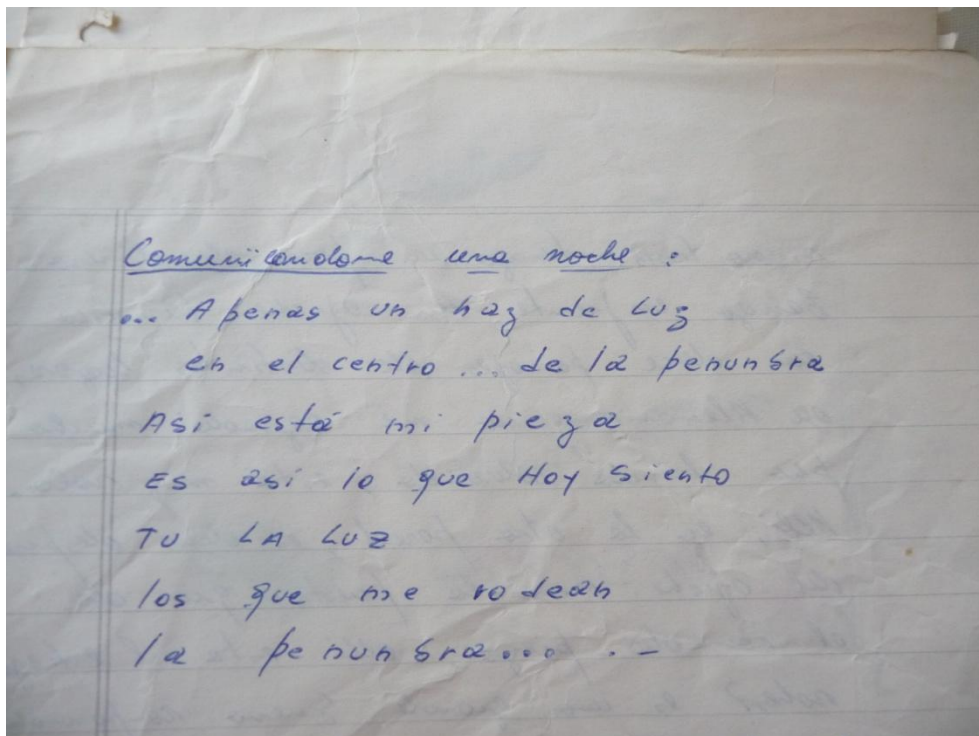 Comunicandome una noche :
... Apenas un haz de Luz
en el centro ... de la penunbra
Asi está mi pieza
Es asi lo que Hoy siento
TU LA LUZ
los que me rodean
la penunbra... . -